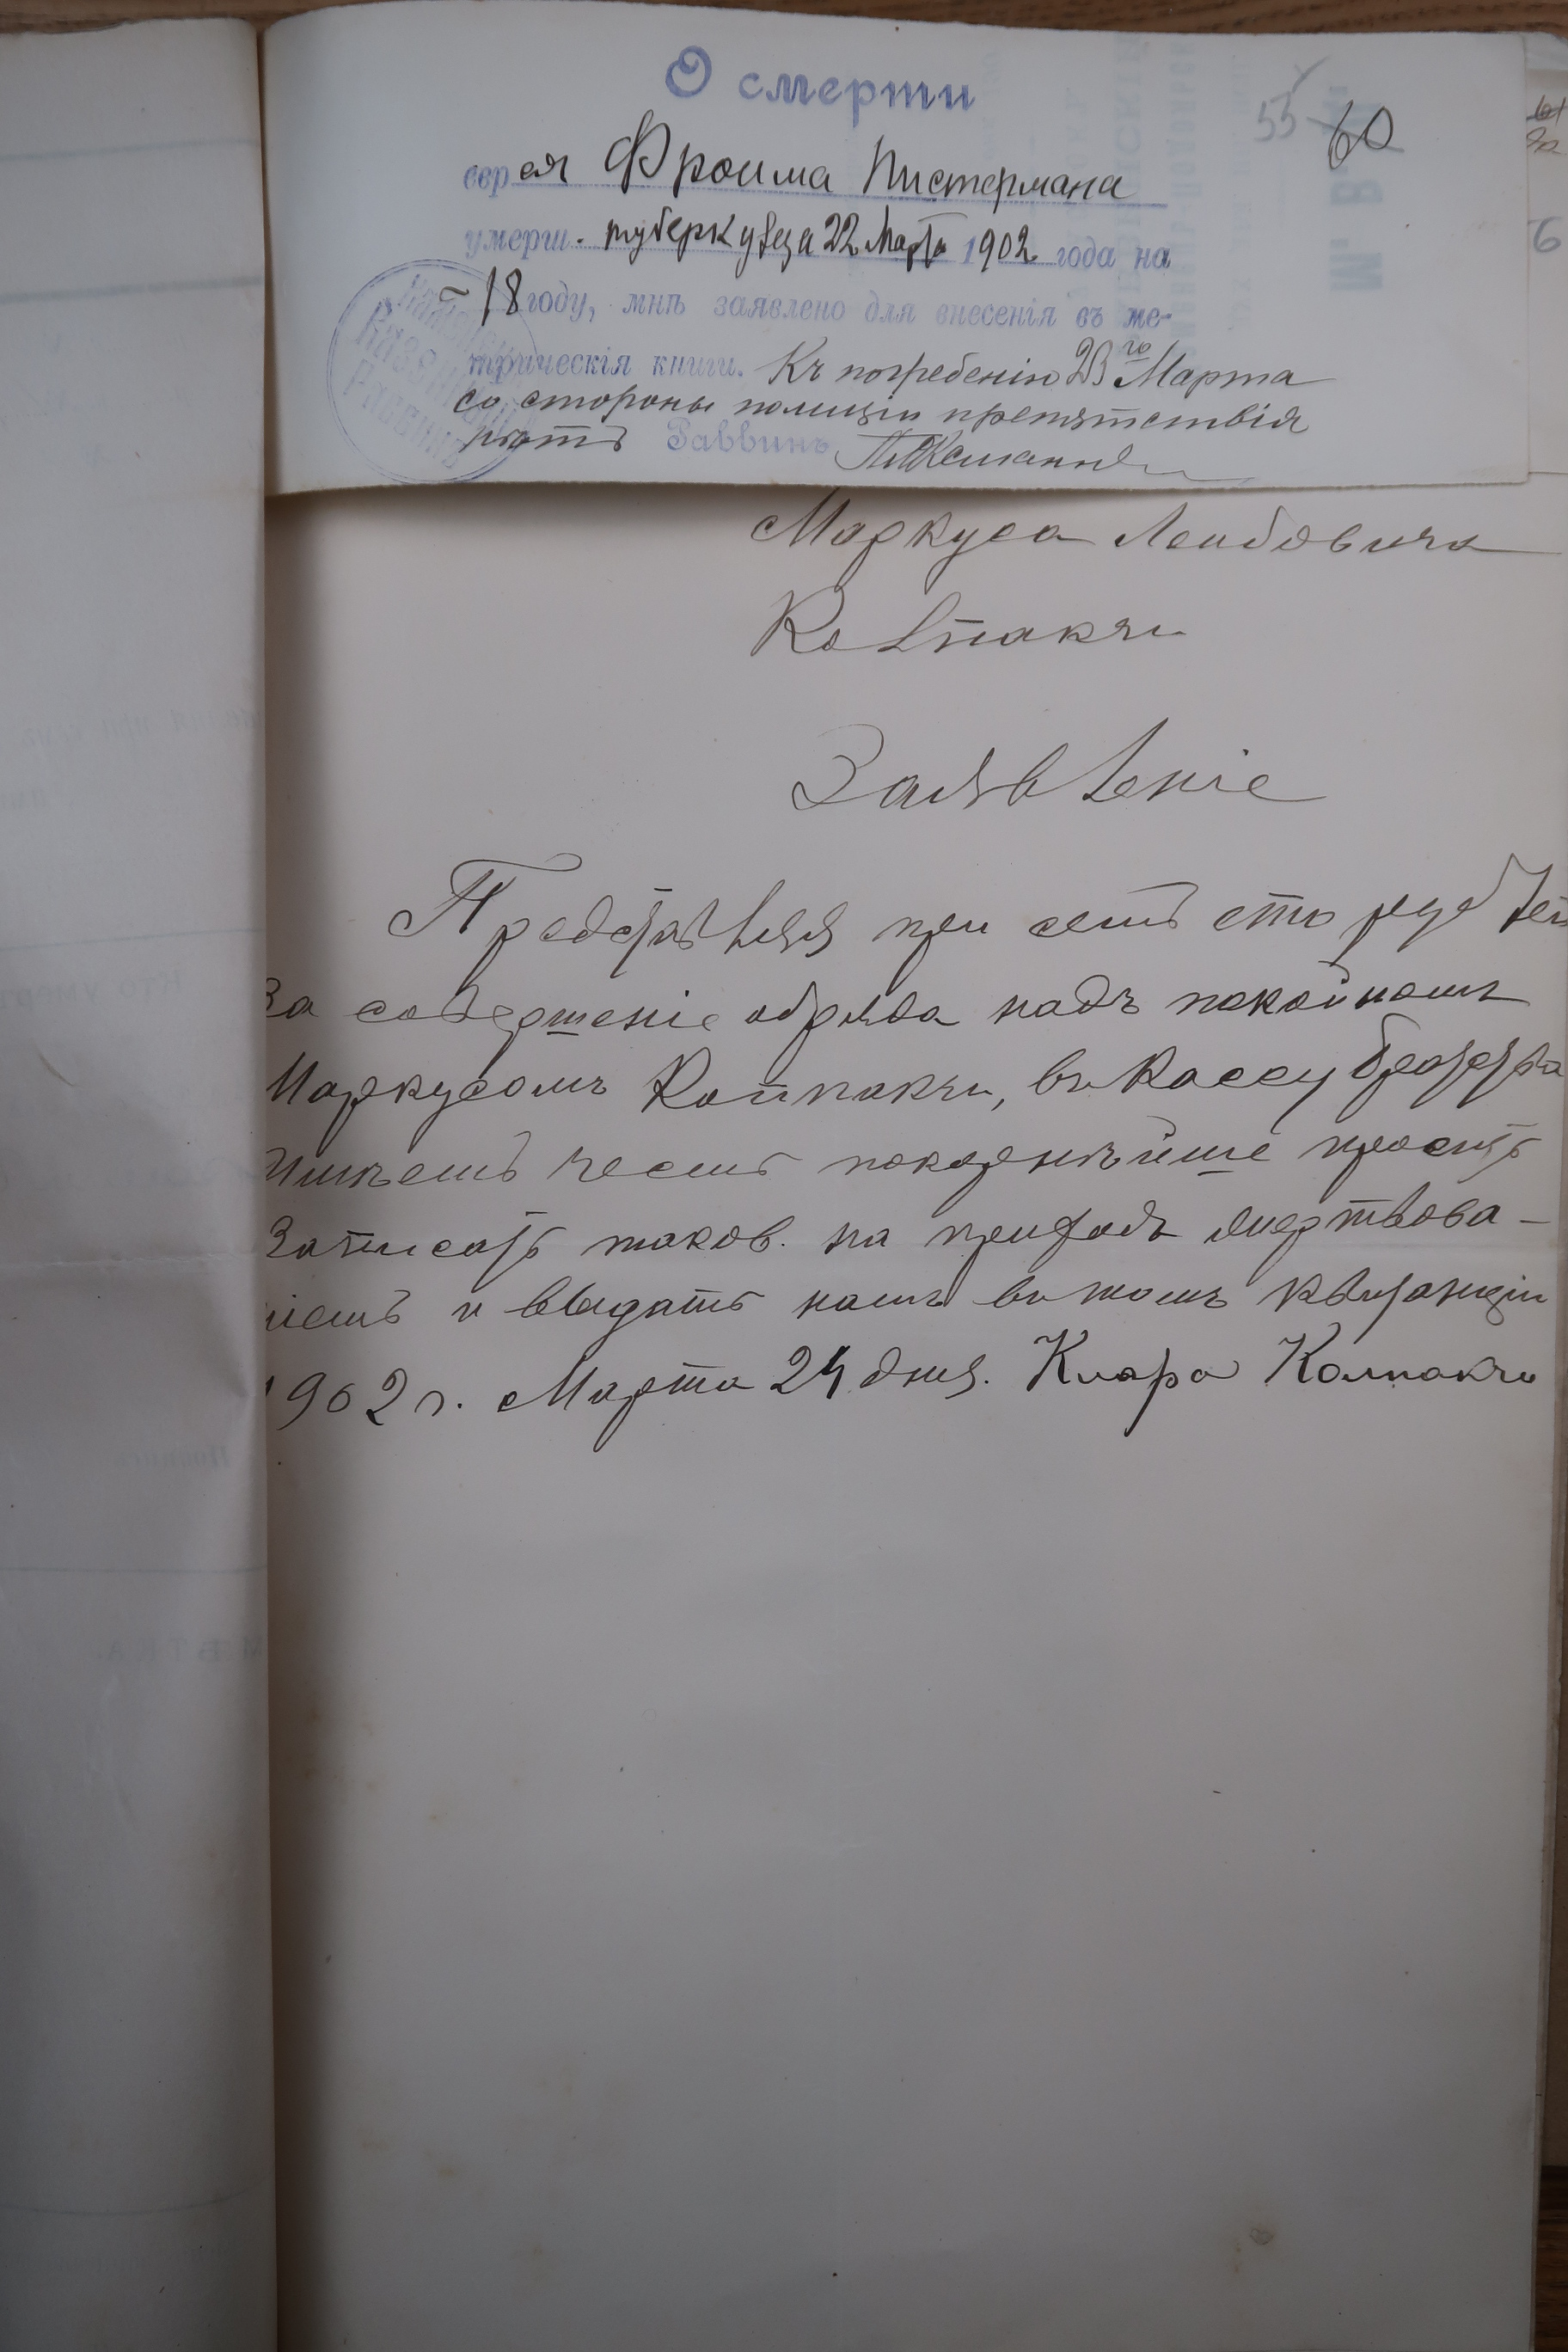 О смерти
55 60
еврея Фроима Пистермана
умерш. туберкулеза 22 Марта 1902 года на
18 году, мнѣ заявлено для внесенія въ ме-
трическія книги. Къ погребенію 23го Марта
со стороны полиціи препятствія
нѣтъ Раввинъ
Казенный
Раввинъ
6
Маркуса Лейбовича
Колпакчи
Заявленіе
Представляя при семъ сто рублей
за совершеніе обряда надъ покойномъ
Маркусомъ Колпакчи, въ кассу братства
Имѣемъ честь покорнѣйше просить
Записать таков. на приходъ пертвова-
ніемъ и выдать намъ въ томъ квитанціи
1902 г. Марта 24 дня. Клара Колпакчи
кто умер
Подпись